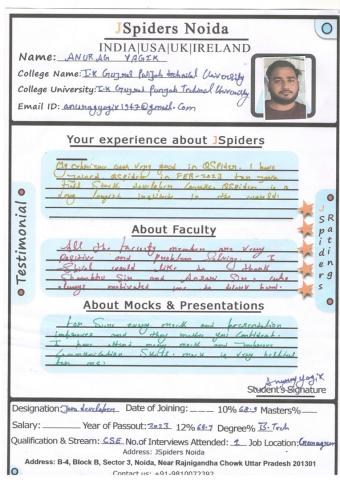 JSpiders Noida
INDIA|USA|UK|IRELAND
Name: ANURAG YAGIK
College Name: I.K Gujral Punjab technical University
College University: I.K Gujral Punjab Technical University
Email ID:
Your experience about JSpiders
My experience was very good in QSpiders. I have
Joined QSpiders in FEB-2023 for Java
full Stack developer Course. QSpiders is a
very largest institute in the world.
About Faculty
All the faculty members are very
positive and problem solving. I
would like to thank
Sir and Sir. who
always motivated me to work hard.
About Mocks & Presentations
For Sure every mock and presentation
improves and they makes you Confident.
I have attend many mock and improve
Communication Skills. mock is very helpful
for me.
Student's Signature
Testimonial
JSpiders
Rating
Designation: Java developer Date of Joining: 10% 68.9 Masters%
Salary: Year of Passout: 2023 12% 68.7 Degree% B.Tech
Qualification & Stream: CSE No.of Interviews Attended: 1 Job Location: Gurugram
Address: JSpiders Noida
Address: B-4, Block B, Sector 3, Noida, Near Rajnigandha Chowk Uttar Pradesh 201301
Contact us: +91-9810072392